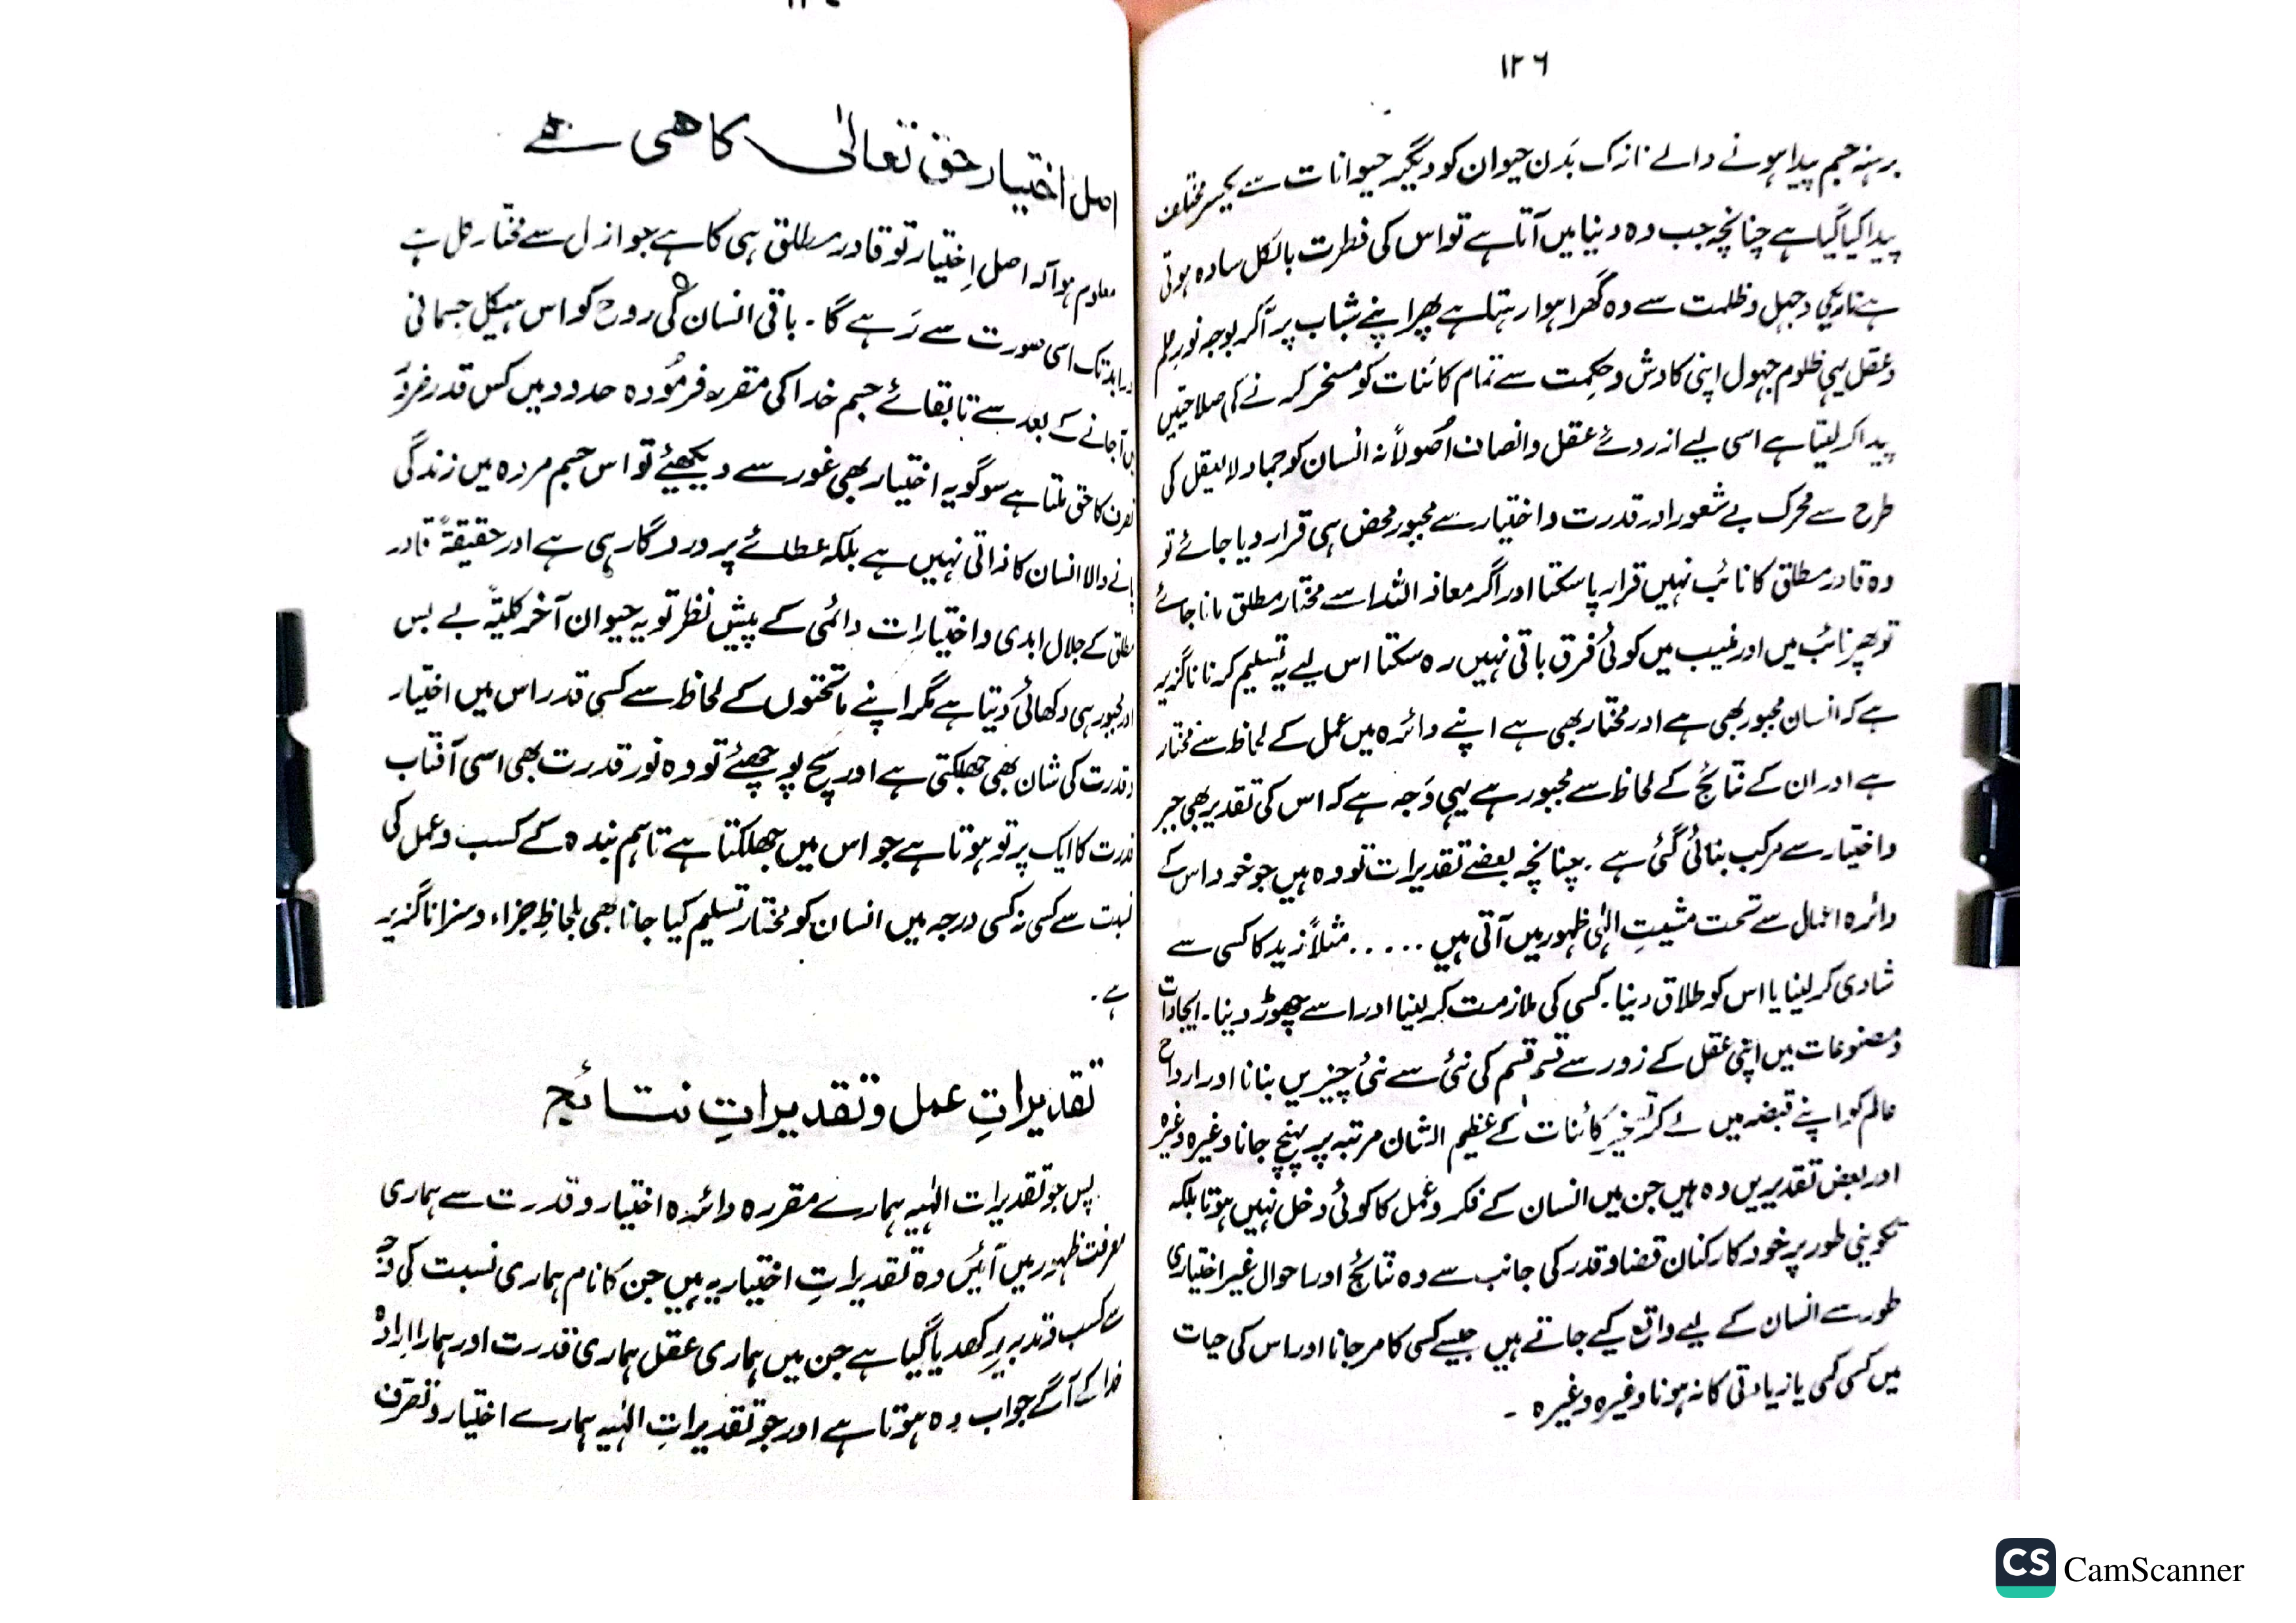 ۱۲۶
برہنہ جسم پیدا ہونے والے نازک بَدن حیوان کو دیگر حیوانات سے یکسر مختلف
پیدا کیا گیا ہے چنانچہ جب وہ دنیا میں آتا ہے تو اس کی فطرت بالکل سادہ ہوتی
ہے تاریکی و جہل و ظلمت سے وہ گھرا ہوا رہتا ہے پھر اپنے شباب پر آکر بوجہ نورِ علم
و عقل یہی ظلوم جہول اپنی کاوش و حکمت سے تمام کائنات کو مسخر کرنے کی صلاحیتیں
پیدا کر لیتا ہے اسی لیے از روئے عقل و انصاف اُصولاً نہ انسان کو جماد لا یعقل کی
طرح سے محرک بے شعور اور قدرت و اختیار سے مجبور محض ہی قرار دیا جائے تو
وہ قادر مطلق کا نائب نہیں قرار پا سکتا اور اگر معاذ اللہ اسے مختار مطلق مانا جائے
تو پھر نائب میں اور منیب میں کوئی فرق باقی نہیں رہ سکتا اس لیے یہ تسلیم کرنا ناگزیر
ہے کہ انسان مجبور بھی ہے اور مختار بھی ہے اپنے دائرہ میں عمل کے لحاظ سے مختار
ہے اور ان کے نتائج کے لحاظ سے مجبور ہے یہی وَجہ ہے کہ اس کی تقدیر بھی جبر
و اختیار سے مرکب بنائی گئی ہے ۔ چنانچہ بعضے تقدیرات تو وہ ہیں جو خود اس کے
دائرہ اعمال سے تحت مشیتِ الٰہی ظہور میں آتی ہیں ..... مثلاً زید کا کسی سے
شادی کر لینا یا اس کو طلاق دینا ۔ کسی کی ملازمت کر لینا اور اسے چھوڑ دینا ۔ ایجادات
و مصنوعات میں اپنی عقل کے زور سے قسم قسم کی نئی سے نئی چیزیں بنانا اور ارواح
عالم کو اپنے قبضہ میں لے کر تسخیرِ کائنات کے عظیم الشان مرتبہ پر پہنچ جانا وغیرہ وغیرہ
اور بعض تقدیریں وہ ہیں جن میں انسان کے فکر و عمل کا کوئی دخل نہیں ہوتا بلکہ
تکوینی طور پر خود کارکنان قضا و قدر کی جانب سے وہ نتائج اور احوال غیر اختیاری
طور سے انسان کے لیے واقع کیے جاتے ہیں جیسے کسی کا مر جانا اور اس کی حیات
میں کسی کمی یا زیادتی کا نہ ہونا وغیرہ وغیرہ ۔
اصل اختیار حق تعالیٰ کا ھی ہے
معلوم ہوا کہ اصل اِختیار تو قادر مطلق ہی کا ہے جو ازل سے مختار کل ہے
ابد تک اسی صورت سے رَہے گا ۔ باقی انسان کی روح کو اس ہیکل جسمانی
میں آجانے کے بعد سے تا بقائے جسم خدا کی مقررہ فرمُودہ حدود میں کس قدر ضرور
تصرف کا حق ملتا ہے سو گو یہ اختیار بھی غور سے دیکھئے تو اس جسم مردہ میں زندگی
پانے والا انسان کا ذاتی نہیں ہے بلکہ عطائے پروردگار ہی ہے اور حقیقۃً قادر
مطلق کے جلال ابدی و اختیارات دائمی کے پیش نظر تو یہ حیوان آخر کلیۃً بے بس
اور مجبور ہی دکھائی دَیتا ہے مگر اپنے ماتحتوں کے لحاظ سے کسی قدر اس میں اختیار
و قدرت کی شان بھی جھلکتی ہے اور سچ پوچھئے تو وہ نور قدرت بھی اسی آفتاب
قدرت کا ایک پر تو ہوتا ہے جو اس میں جھلکتا ہے تاہم بندہ کے کسب و عمل کی
نسبت سے کسی نہ کسی درجہ میں انسان کو مختار تسلیم کیا جانا بھی بلحاظِ جزاء و سزا ناگزیر
ہے ۔
تقدیراتِ عمل و تقدیراتِ نتائج
پس جو تقدیرات الٰہیہ ہمارے مقررہ دائرہ اختیار و قدرت سے ہماری
معرفت ظہور میں آئیں وہ تقدیراتِ اختیاریہ ہیں جن کا نام ہماری نسبت کی وجہ
سے کسب و تدبیر رکھدیا گیا ہے جن میں ہماری عقل ہماری قدرت اور ہمارا ارادہ
خدا کے آگے جواب دہ ہوتا ہے اور جو تقدیراتِ الٰہیہ ہمارے اختیار و تصرف
CS CamScanner